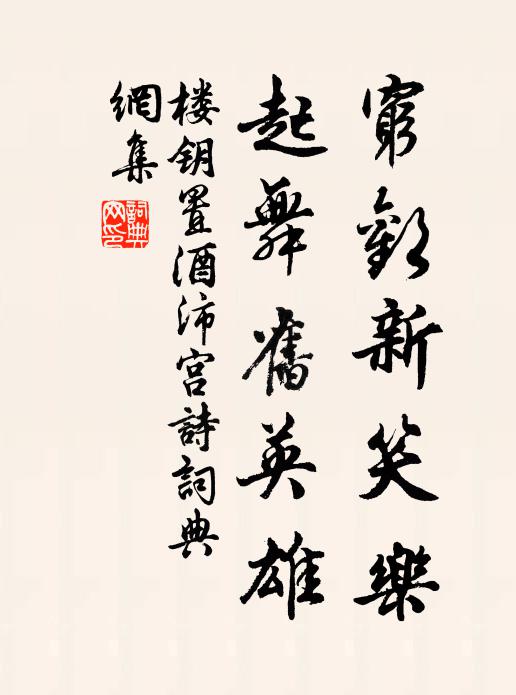 窮歡新笑樂
起舞舊英雄
楼钥置酒沛宫詩詞典
網集
詞典网印